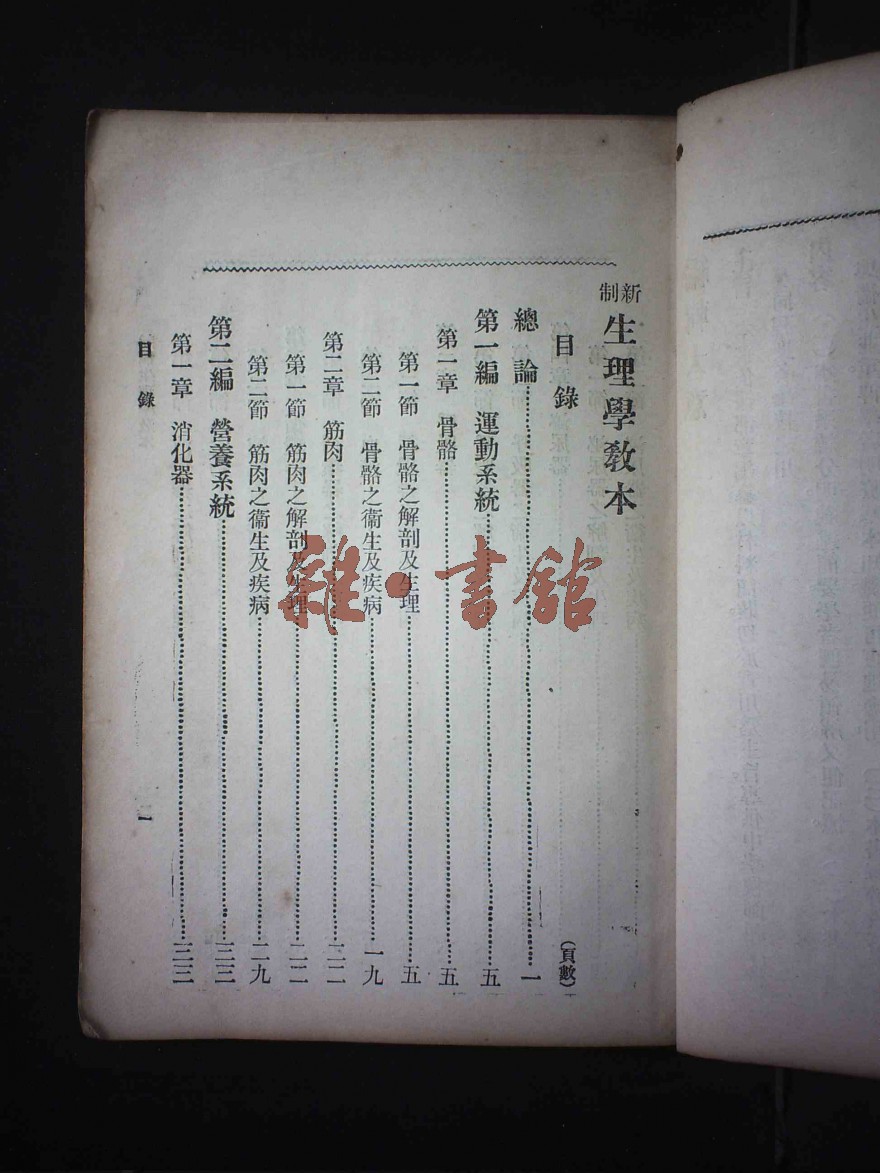 新制 生理學教本
目錄 (頁數)
總論 一
第一編 運動系統 五
第一章 骨骼 五
第一節 骨骼之解剖及生理 五
第二節 骨骼之衞生及疾病 一九
第二章 筋肉 二二
第一節 筋肉之解剖及生理 二二
第二節 筋肉之衞生及疾病 二九
第二編 營養系統 三三
第一章 消化器 三三
目錄 一
雜·書館